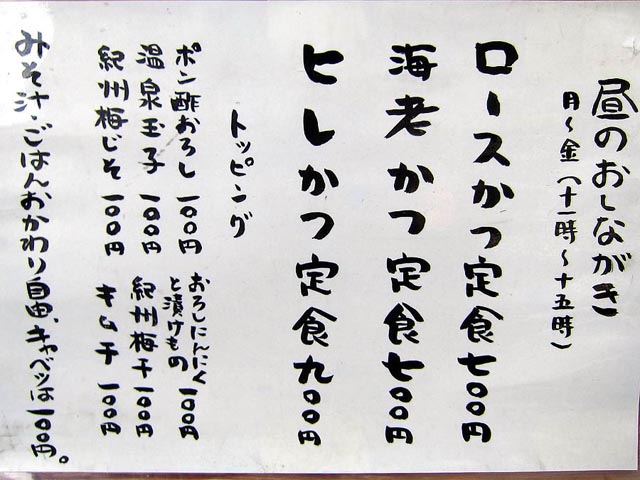 昼のおしながき
月〜金(十一時〜十五時)
ロースかつ定食七〇〇円
海老かつ定食七〇〇円
ヒレかつ定食九〇〇円
トッピング
ポン酢おろし 一〇〇円
温泉玉子 一〇〇円
紀州梅じそ 一〇〇円
おろしにんにく
と漬けもの 一〇〇円
紀州梅干 一〇〇円
キムチ 一〇〇円
みそ汁・ごはんおかわり自由、キャベツは一〇〇円。